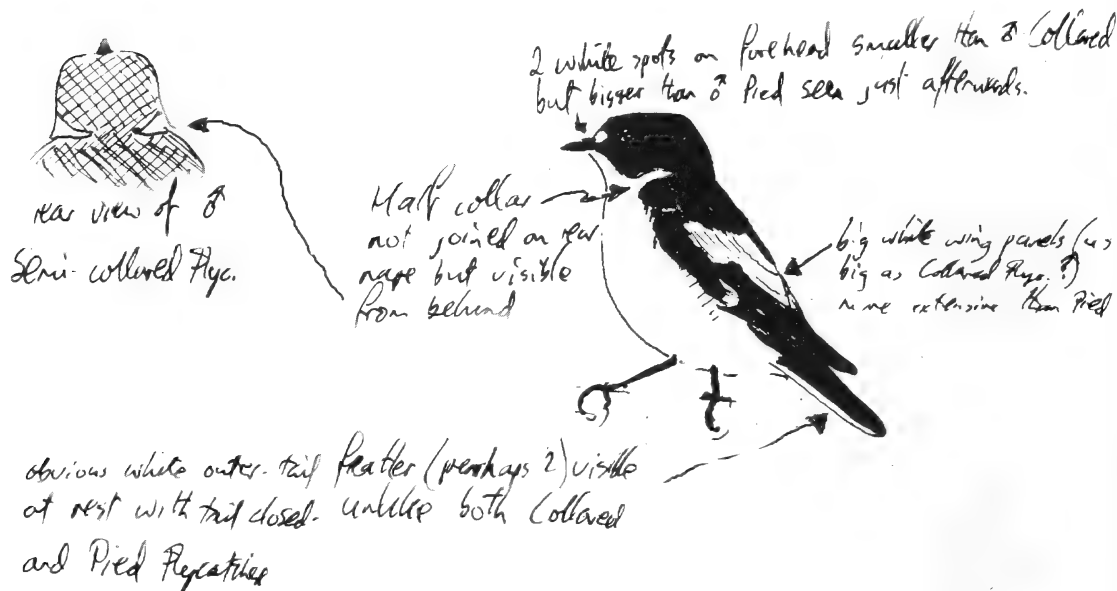 2 white spots on forehead smaller than ♂ Collared
but bigger than ♂ Pied seen just afterwards.
rear view of ♂
Semi-collared Flyc.
Half collar
not joined on rear
nape but visible
from behind
big white wing panels (as
big as Collared Flyc.?)
more extensive than Pied
obvious white outer-tail feather (perhaps 2) visible
at rest with tail closed. unlike both Collared
and Pied Flycatcher